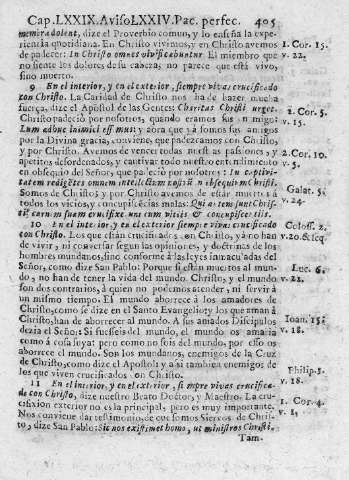 Cap. LXXIX. Aviso LXXIV. Pac. perfec. 405
memora dolent, dize el Proverbio comun, y lo enseña la expe-
riencia quotidiana. En Christo vivimos, y en Christo avemos
de padecer: In Christo omnes vivificabuntur. El miembro que
no siente los dolores de su cabeza, no parece que está vivo,
sino muerto.
1. Cor. 15.
v. 22.
9 En el interior, y en el exterior, siempre vivas crucificado
con Christo. La Caridad de Christo nos ha de hazer mucha
fuerça, dize el Apostol de las Gentes: Charitas Christi urget.
Christo padeció por nosotros, quando eramos sus enemigos:
Cum adhuc inimici essemus; y aora que yá somos sus amigos
por la Divina gracia, conviene, que padezcamos con Christo,
y por Christo. Avemos de vencer todas nuestras passiones, y
apetitos desordenados, y cautivar todo nuestro entendimiento
en obsequio del Señor, que padeció por nosotros: In captivi-
tatem redigentes omnem intellectum in obsequium Christi.
Somos de Christo; y por Christo avemos de estar muertos á
todos los vicios, y concupiscencias malas: Qui autem sunt Chris-
ti, carnem suam crucifixerunt cum vitiis & concupiscentiis.
2. Cor. 5.
v. 15.
2. Cor. 10.
v. 5.
Galat. 5.
v. 24.
10 En el interior, y en el exterior siempre vivas crucificado
con Christo. Los que están crucificados con Christo, yá no han
de vivir, ni conversar segun las opiniones, y doctrinas de los
hombres mundanos, sino conforme á las leyes inmaculadas del
Señor, como dize San Pablo: Porque si están muertos al mun-
do, no han de tener la vida del mundo. Christo, y el mundo
son dos contrarios, á quien no podemos atender, ni servir á
un mismo tiempo. El mundo aborrece á los amadores de
Christo, como se dize en el Santo Evangelio; y los que aman á
Christo, han de aborrecer al mundo. A sus amados Discipulos
dezia el Señor: Si fuesseis del mundo, el mundo os amaria
como á cosa suya; pero como no sois del mundo, por esso os
aborrece el mundo. Son los mundanos, enemigos de la Cruz
de Christo, como dize el Apostol; y assi tambien enemigos de
los que viven crucificados con Christo.
Coloss. 2.
v. 20. & seq.
Luc. 6.
v. 22.
Ioan. 15.
v. 18.
Philip. 3.
v. 18.
11 En el interior, y en el exterior, siempre vivas crucifica-
do con Christo, dize nuestro Beato Doctor, y Maestro. La cru-
cifixion exterior no es la principal, pero es muy importante.
Nos conviene dar testimonio, de que somos Siervos de Chris-
to, dize San Pablo: Sic nos existimet homo, ut ministros Christi.
1. Cor. 4.
v. 1.
Tam-